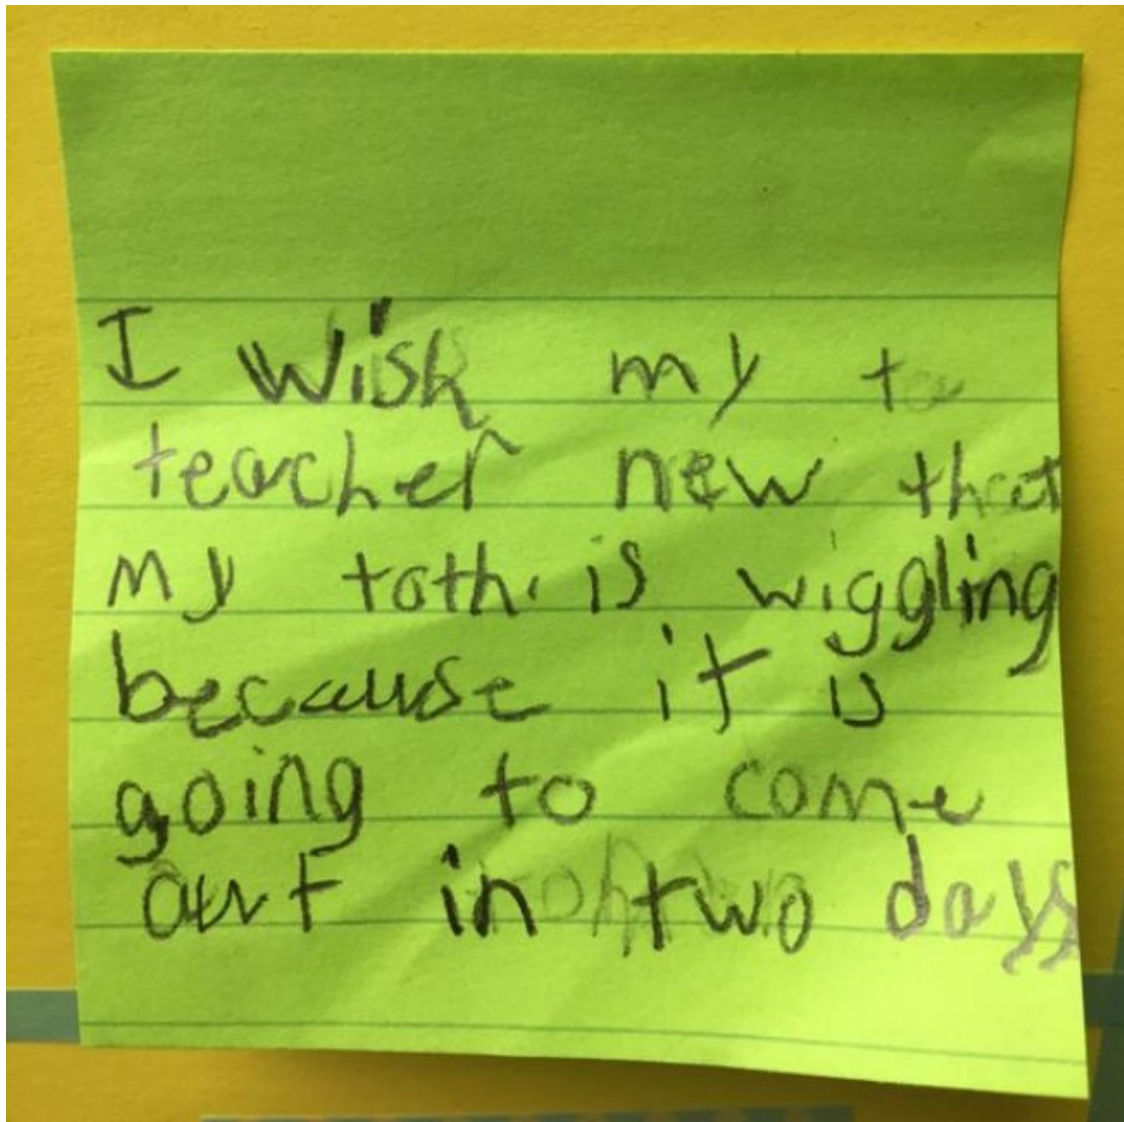 I wish my
teacher new that
my toth is wiggling
because it is
going to come
out in two days